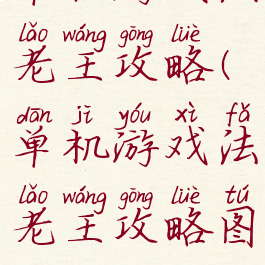 lǎo wáng gōng lüè
老王攻略(
dān jī yóu xì fǎ
单机游戏法
lǎo wáng gōng lüè tú
老王攻略图